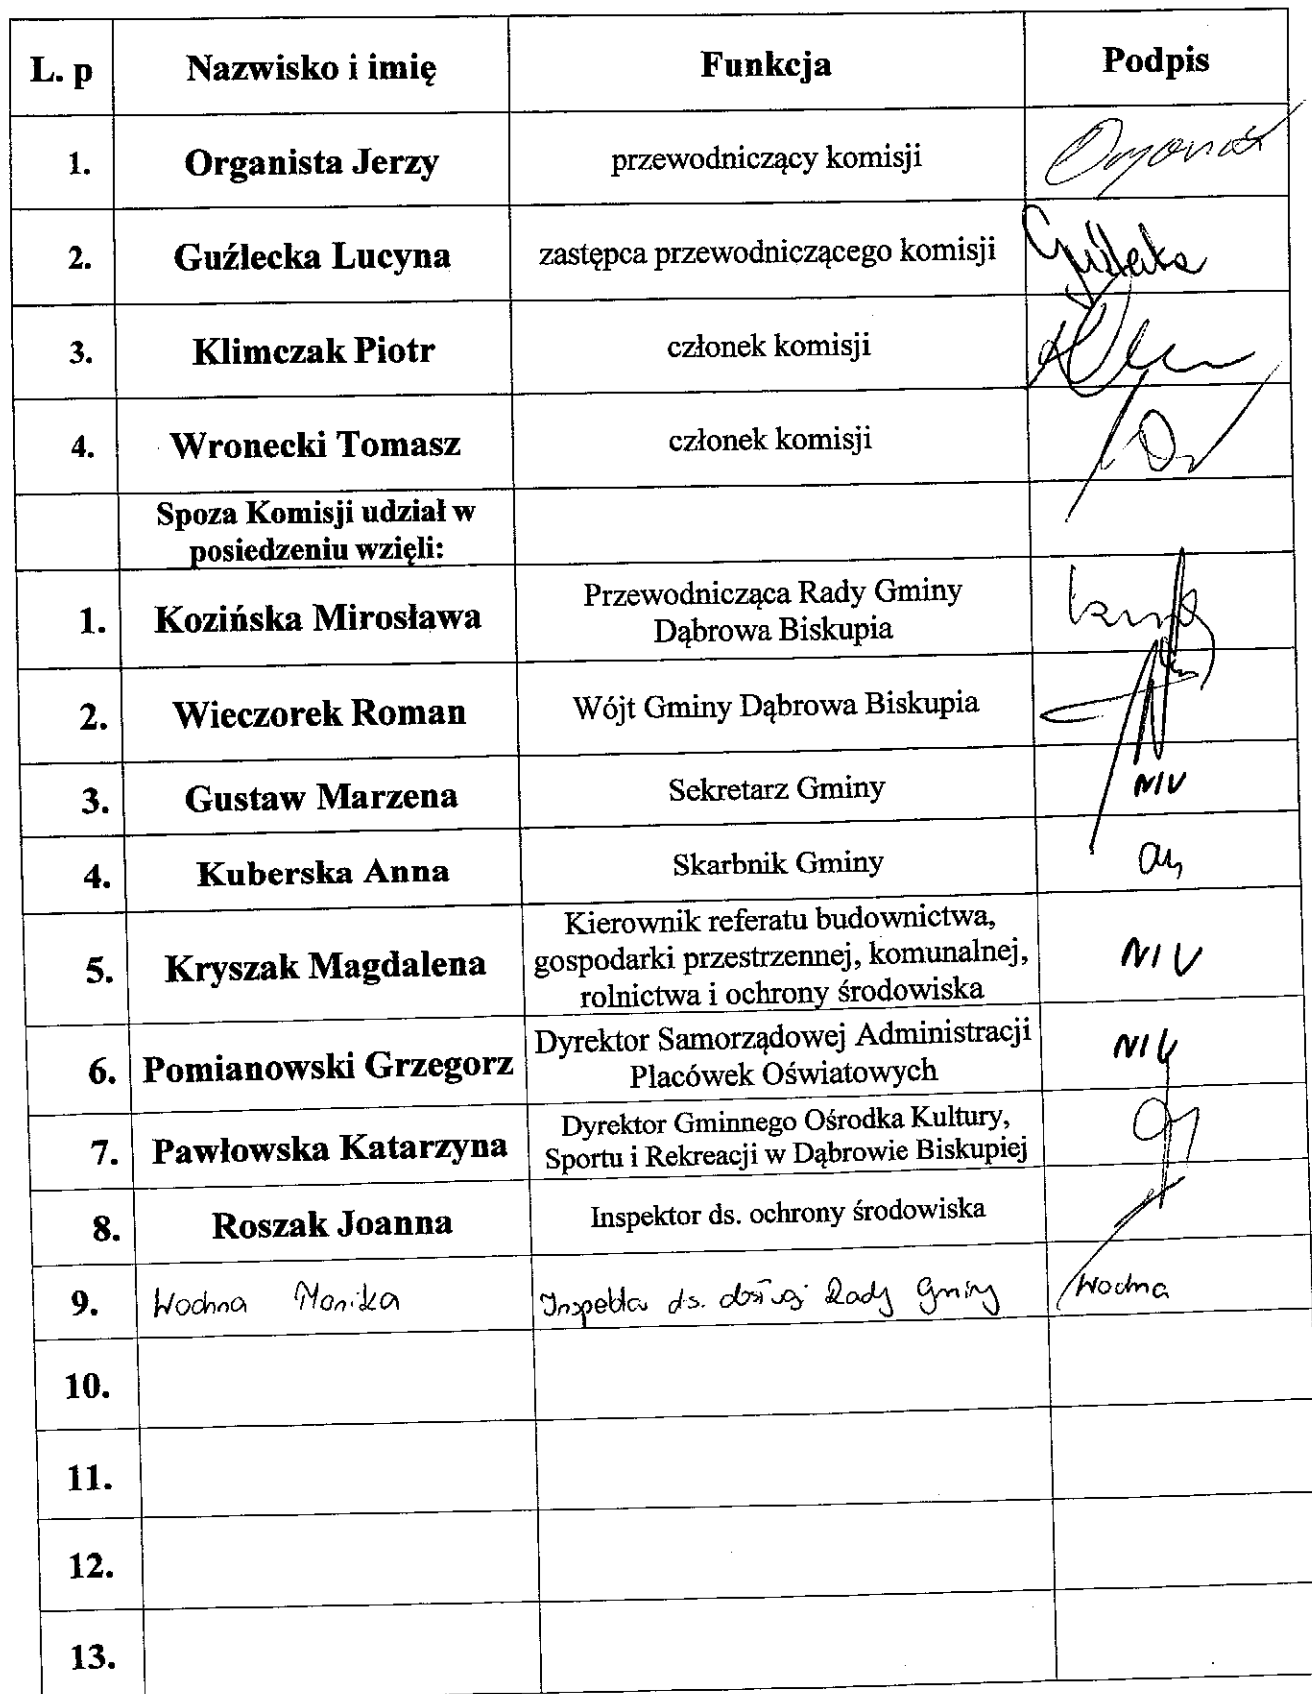 L. p Nazwisko i imię Funkcja Podpis
1. Organista Jerzy przewodniczący komisji
2. Guźlecka Lucyna zastępca przewodniczącego komisji Guźlecka
3. Klimczak Piotr członek komisji
4. Wronecki Tomasz członek komisji
Spoza Komisji udział w
posiedzeniu wzięli:
1. Kozińska Mirosława Przewodnicząca Rady Gminy
Dąbrowa Biskupia
2. Wieczorek Roman Wójt Gminy Dąbrowa Biskupia
3. Gustaw Marzena Sekretarz Gminy NIU
4. Kuberska Anna Skarbnik Gminy
5. Kryszak Magdalena Kierownik referatu budownictwa,
gospodarki przestrzennej, komunalnej,
rolnictwa i ochrony środowiska NIU
6. Pomianowski Grzegorz Dyrektor Samorządowej Administracji
Placówek Oświatowych NIU
7. Pawłowska Katarzyna Dyrektor Gminnego Ośrodka Kultury,
Sportu i Rekreacji w Dąbrowie Biskupiej
8. Roszak Joanna Inspektor ds. ochrony środowiska
9. Wodna Monika Inspektor ds. obsługi Rady Gminy Wodna
10.
11.
12.
13.